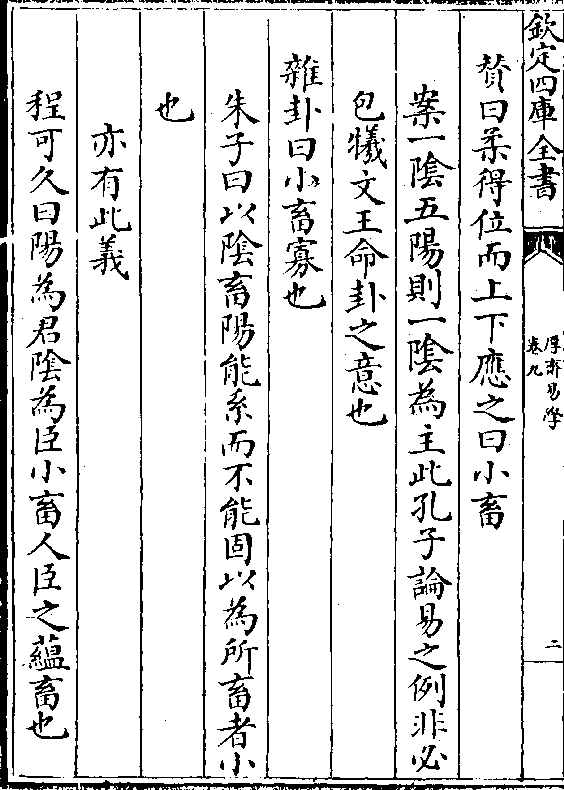 欽定四庫全書
厚齋易學
卷九
二
贊曰柔得位而上下應之曰小畜
案一陰五陽則一陰為主此孔子論易之例非必
包犧文王命卦之意也
雜卦曰小畜寡也
朱子曰以陰畜陽能系而不能固以為所畜者小
也
亦有此義
程可久曰陽為君陰為臣小畜人臣之蘊畜也